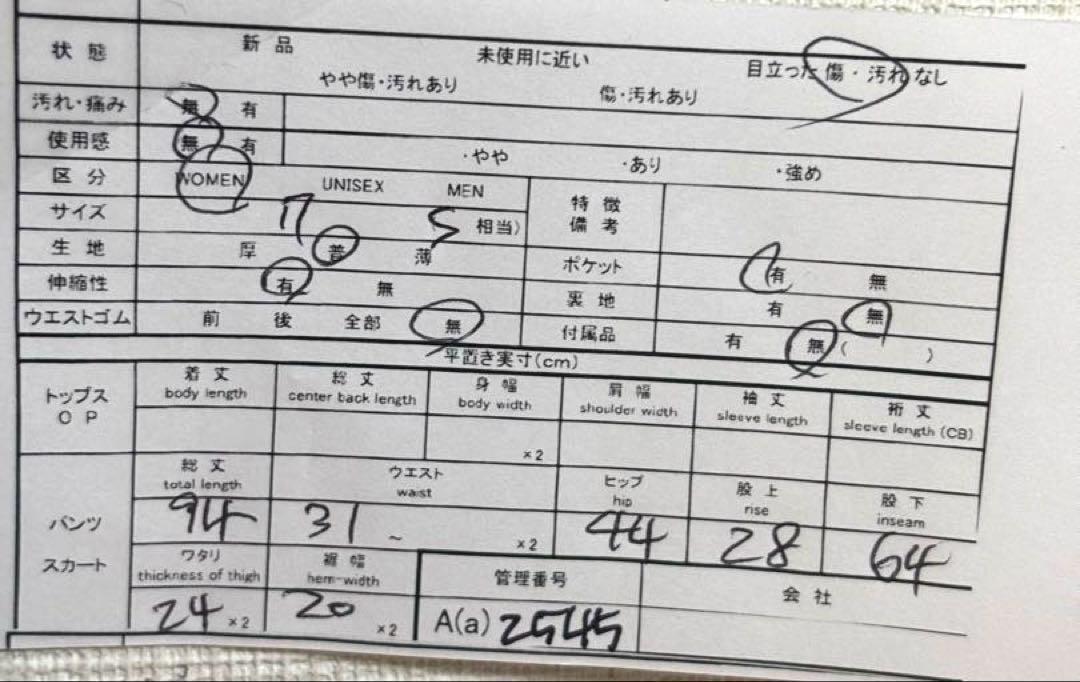 状態 新品 未使用に近い 目立った傷・汚れなし
やや傷・汚れあり 傷・汚れあり
汚れ・痛み 無 有
使用感 無 有 ・やや ・あり ・強め
区分 WOMEN UNISEX MEN
特徴
備考
サイズ 相当)
生地 厚 普 薄
ポケット 有 無
伸縮性 有 無
裏地 有 無
ウエストゴム 前 後 全部 無
付属品 有 無( )
平置き実寸(cm)
トップス
OP
着丈 総丈 身幅 肩幅 袖丈 裄丈
body length center back length body width shoulder width sleeve length sleeve length (CB)
×2
パンツ
スカート
総丈 ウエスト ヒップ 股上 股下
total length waist hip rise inseam
94 31 ~ ×2 44 28 64
ワタリ 裾幅 管理番号 会社
thickness of thigh hem-width
24 ×2 20 ×2 A(a) 2545